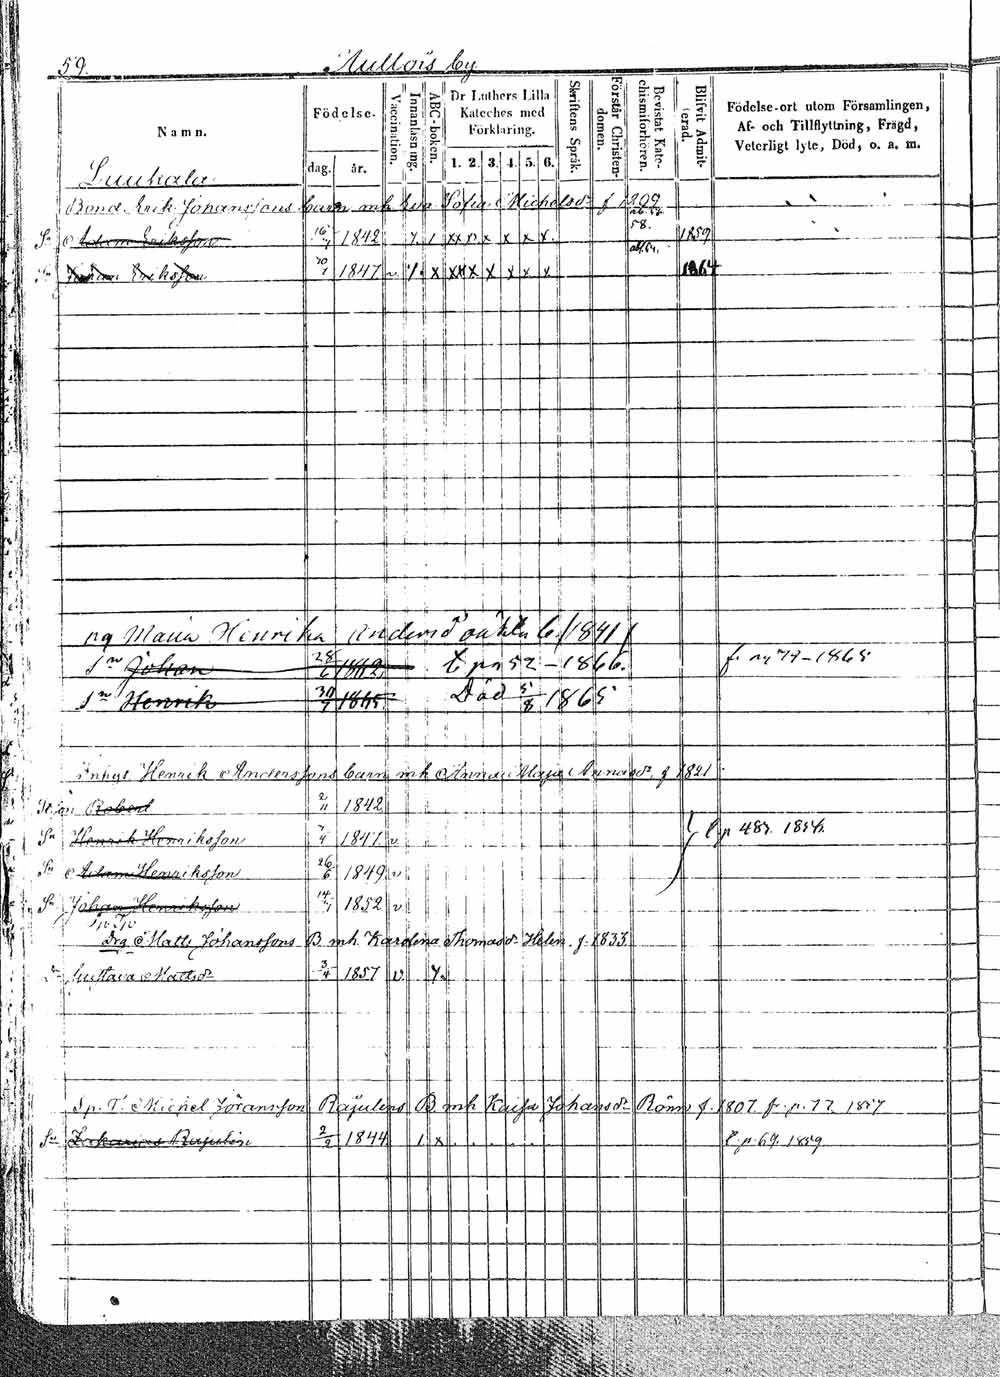 59. Aullois by
Namn.
Födelse-
dag. år.
Vaccination.
Innanläsning.
ABC-boken.
Dr Luthers Lilla Kateches med Förklaring.
1. 2. 3. 4. 5. 6.
Skriftens Språk.
Förstår Christendomen.
Bevistat Katechismiförhören.
Blifvit Admitterad.
Födelse-ort utom Församlingen,
Af- och Tillflyttning, Frägd,
Veterligt lyte, Död, o. a. m.
Luukala
Bond. Erik Johanssons barn mh Eva Sofia Michelsdr f 1809
Sn Adam Eriksson 16/7 1842 58. 1859
Sn Johan Eriksson 20/1 1847 v 1864
pg Maria Henrika Andersd 1841
sn Johan 28/6 1862 t pn 52 - 1866. fr. pg 77 - 1865
sn Henrik 30/7 1865 Död 5/8 1865
Inhys Henrik Anderssons barn mh Anna Maja Annasdr f 1821
Robert 2/11 1842
Sn Henrik Henriksson 7/4 1847 v
Sn Adam Henriksson 26/6 1849 v
Sn Johan Henriksson 14/1 1852 v
Drg Matts Johanssons B mh Karolina Thomasdr Helen f. 1833
Dr Gustava Mattsdr 3/4 1857 v.
Sp. T. Michel Jöransson Rajulens B mh Kaisa Johansdr Rönn f. 1807 fr. p. 77 1857
Sn Zakarias Rajulin 2/2 1844 t. p. 69. 1859